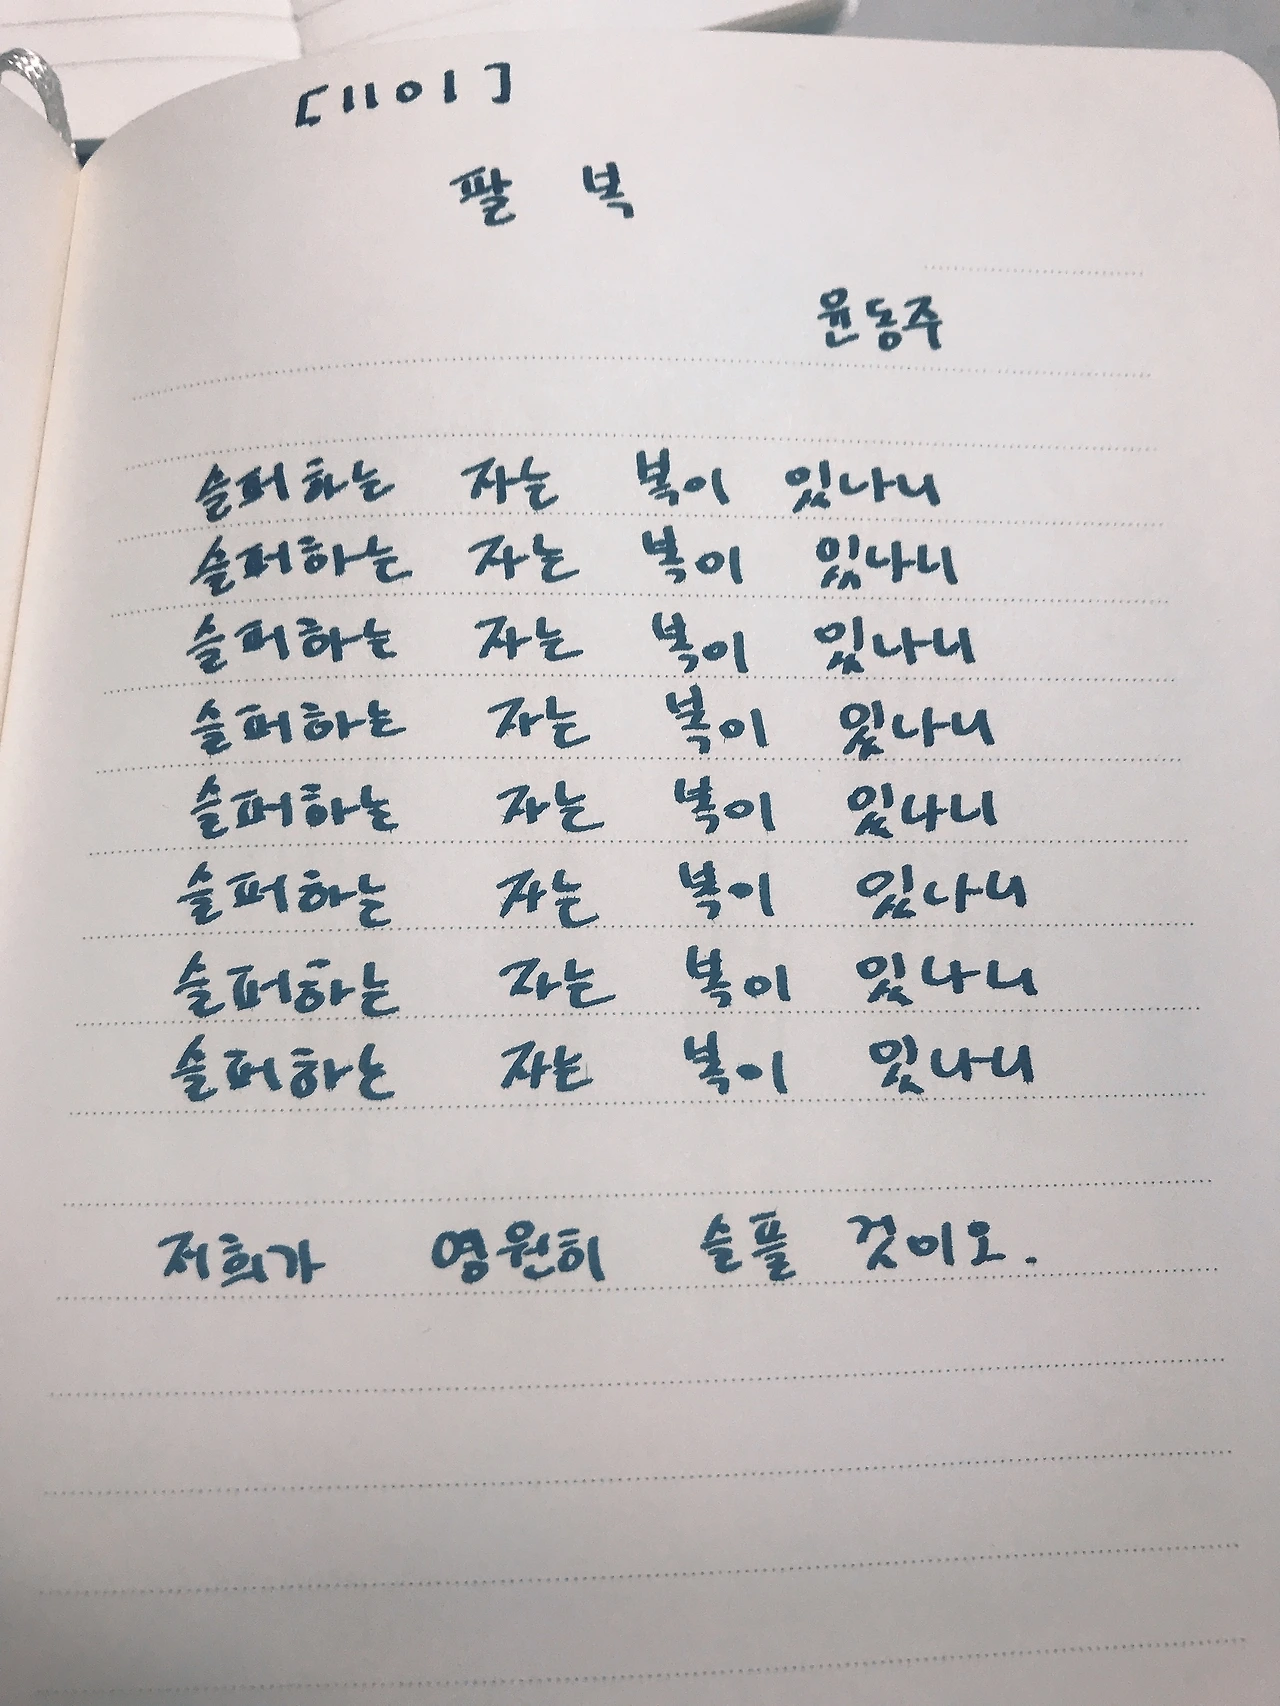 [1101]
팔 복
윤동주
슬퍼하는 자는 복이 있나니
슬퍼하는 자는 복이 있나니
슬퍼하는 자는 복이 있나니
슬퍼하는 자는 복이 있나니
슬퍼하는 자는 복이 있나니
슬퍼하는 자는 복이 있나니
슬퍼하는 자는 복이 있나니
슬퍼하는 자는 복이 있나니
저희가 영원히 슬플 것이오.